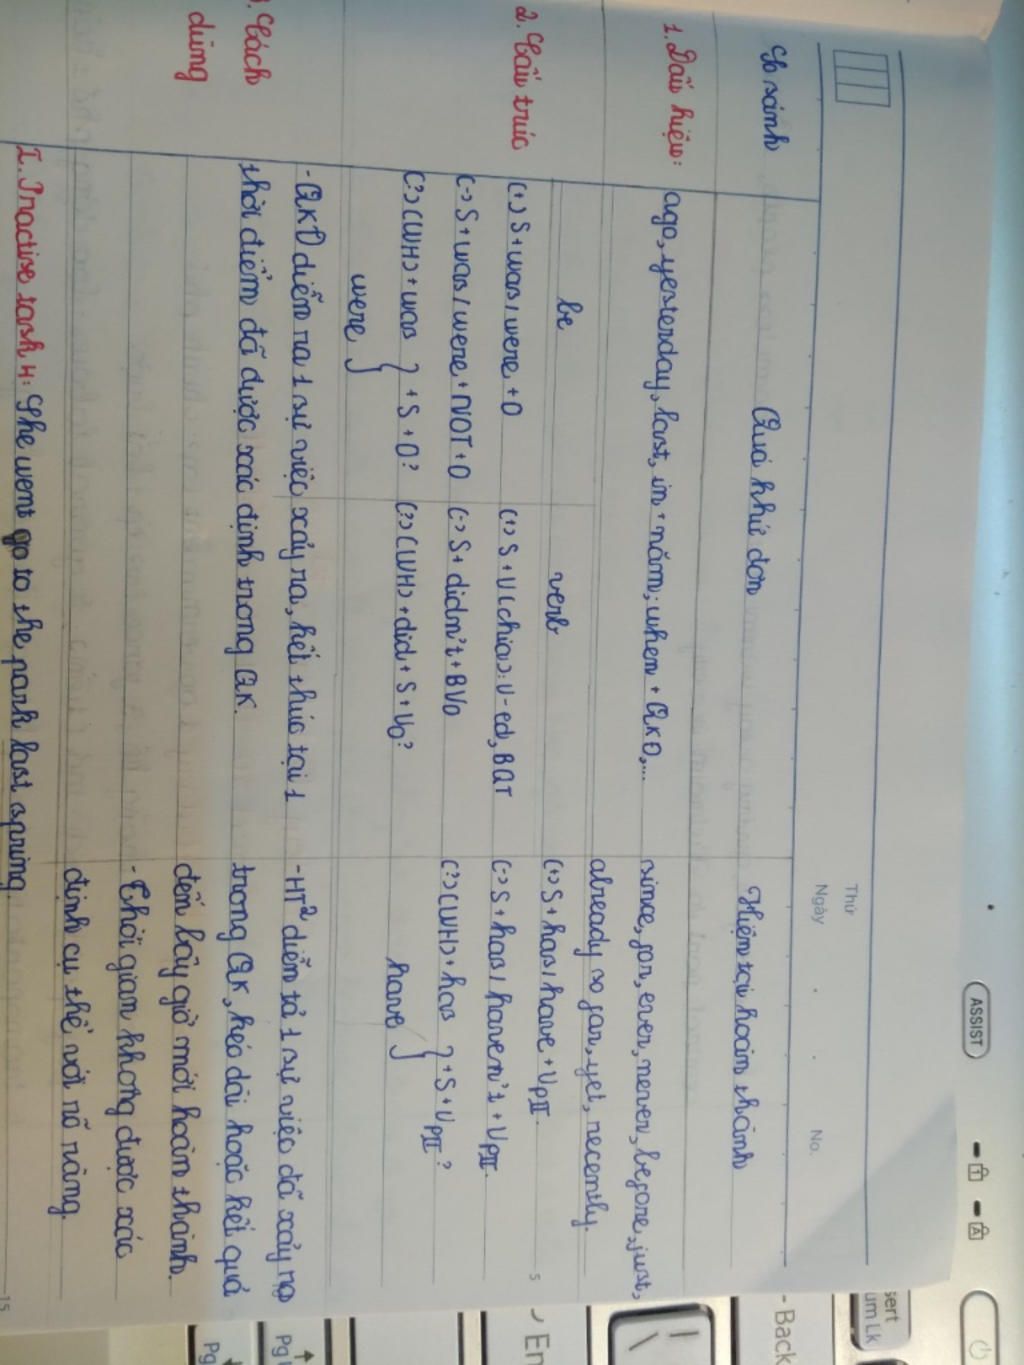 Thứ
Ngày . . No.
So sánh
Quá khứ đơn
Hiện tại hoàn thành
1. Dấu hiệu:
ago, yesterday, last, in + năm; when + QKĐ,...
since, for, ever, never, before, just,
already so far, yet, recently.
2. Cấu trúc
be
verb
(+) S + was / were + O
(+) S + V (chia): V-ed, BQT
(+) S + has / have + VpII.
(-) S + was / were + NOT + O
(-) S + didn't + BV0
(-) S + has / haven't + VpII.
(?) (WH) + was } + S + O?
were
(?) (WH) + did + S + V0?
(?) (WH) + has } + S + VpII?
have
3. Cách
dùng
- QKĐ diễn ra 1 sự việc xảy ra, kết thúc tại 1
thời điểm đã được xác định trong QK.
- HT² diễn tả 1 sự việc đã xảy ra
trong QK, kéo dài hoặc kết quả
đến bây giờ mới hoàn thành.
- Thời gian không được xác
định cụ thể với rõ ràng.
I. Practise task 4: She went go to the park last spring.
5
15
ASSIST
sert
um Lk
- Back
En
Pg
Pg